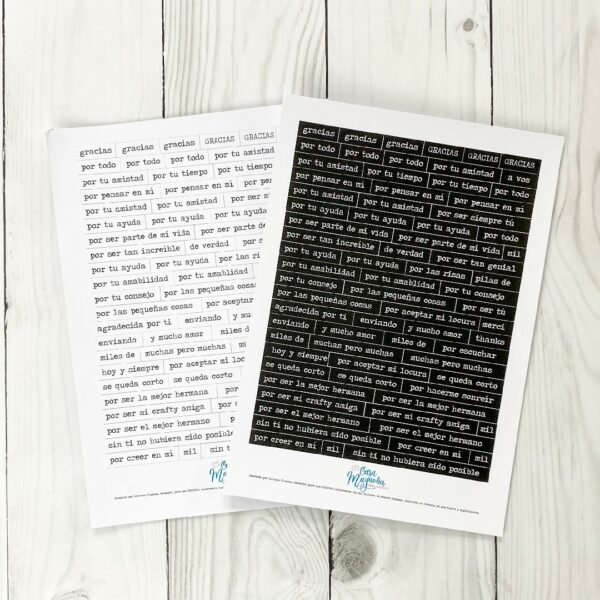 gracias gracias gracias GRACIAS GRACIAS
por todo por todo por todo por tu amistad
por tu amistad por tu tiempo por tu tiempo
por pensar en mi por pensar en mi por pensar
por tu amistad por tu amistad por ser siempre
por tu ayuda por tu ayuda por tu ayuda
por ser parte de mi vida por ser parte de
por ser tan increible de verdad por ser
por tu ayuda por tu ayuda por las
por tu amabilidad por tu amabilidad
por tu consejo por las pequeñas
por las pequeñas cosas por aceptar
agradecida por ti enviando y mucho
enviando y mucho amor miles de
miles de muchas pero muchas
hoy y siempre por aceptar mi
se queda corto se queda corto
por ser la mejor hermana
por ser mi crafty amiga
por ser el mejor hermano
sin ti no hubiera sido posible
por creer en mi mil
Casa Magnolia
gracias gracias gracias GRACIAS GRACIAS GRACIAS
por todo por todo por todo por tu amistad a vos
por tu amistad por tu tiempo por tu tiempo por todo
por pensar en mi por pensar en mi por pensar en mi
por tu amistad por tu amistad por ser siempre tú
por tu ayuda por tu ayuda por tu ayuda por todo
por ser parte de mi vida por ser parte de mi vida mil
por ser tan increible de verdad por ser tan genial
por tu ayuda por tu ayuda por las risas pilas de
por tu amabilidad por tu amabilidad por tu consejo
por tu consejo por las pequeñas cosas por ser tú
por las pequeñas cosas por aceptar mi locura merci
agradecida por ti enviando y mucho amor thanks
enviando y mucho amor miles de por escuchar
miles de muchas pero muchas muchas pero muchas
hoy y siempre por aceptar mi locura se queda corto
se queda corto se queda corto por hacerme sonreir
por ser la mejor hermana por ser la mejor hermana
por ser mi crafty amiga por ser mi crafty amiga mil
por ser el mejor hermano por ser el mejor hermano
sin ti no hubiera sido posible por creer en mi mil
por creer en mi mil sin ti no hubiera sido posible
Casa Magnolia